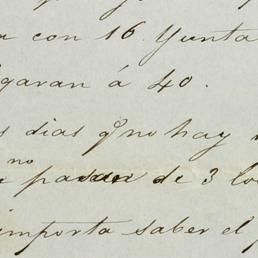 con 16 Yunta
garan á 40.
dias q no hay
no
pasan de 3
importa saber el